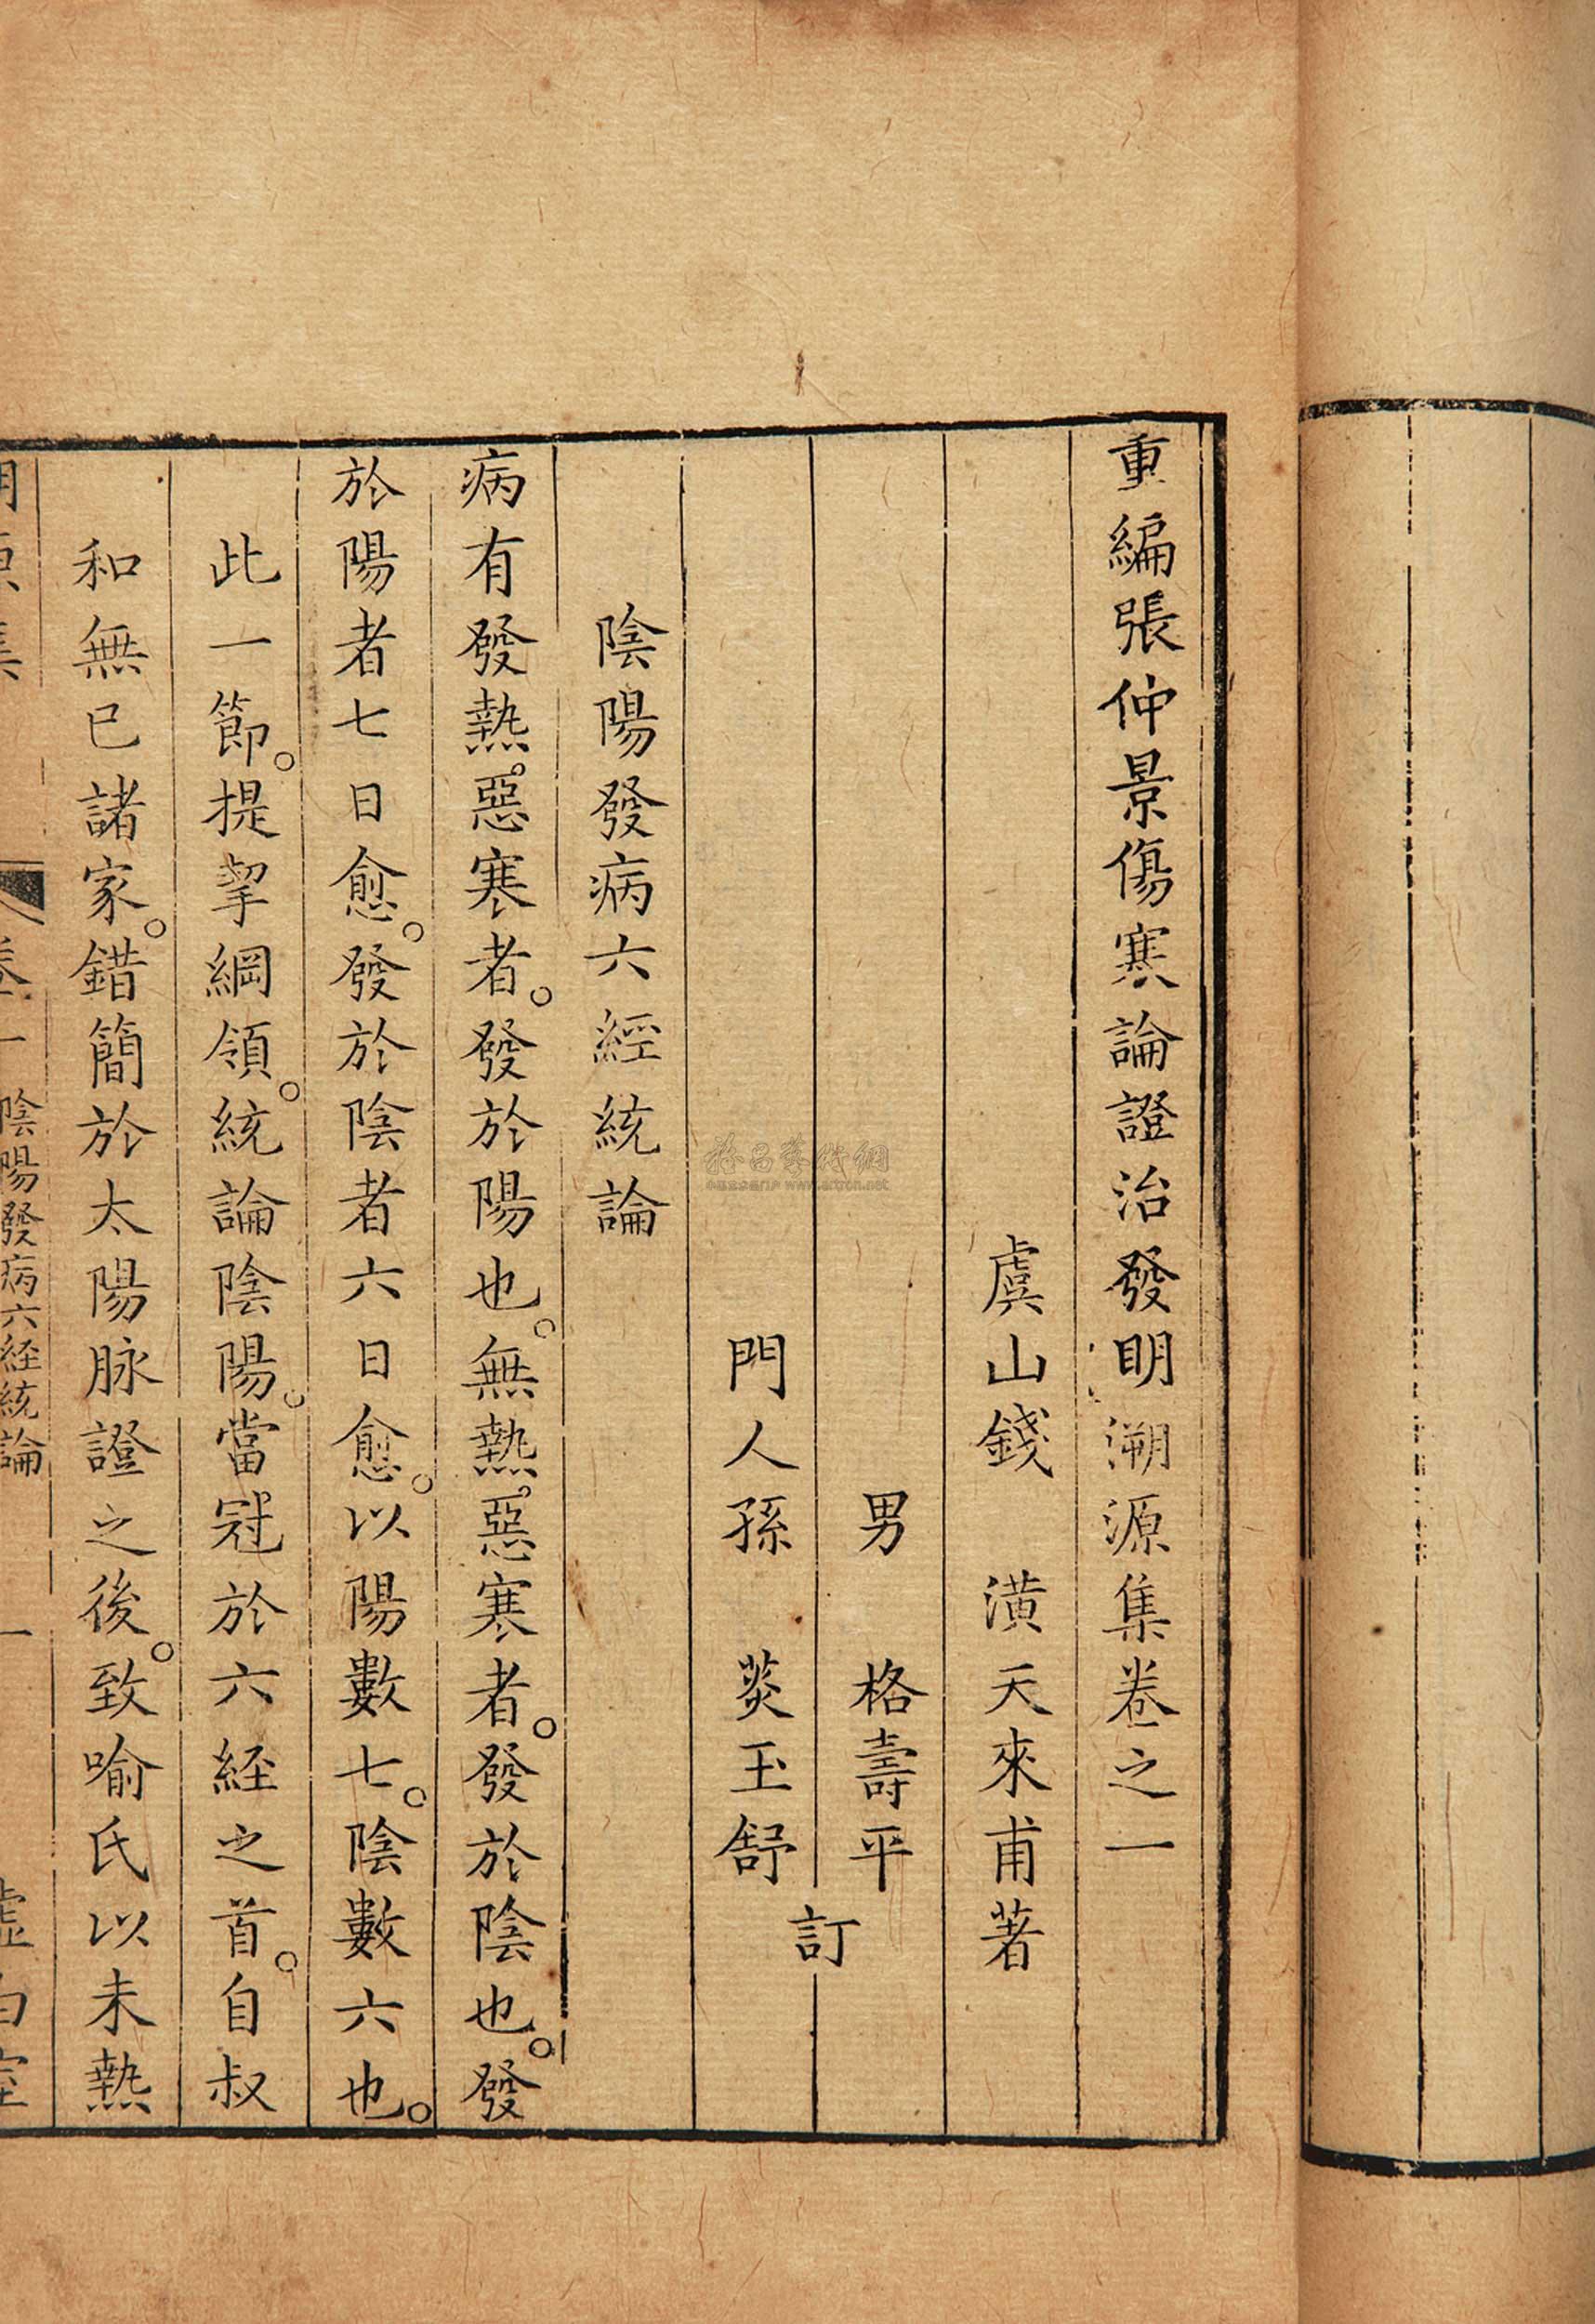 重編張仲景傷寒論證治發明溯源集卷之一
虞山錢　潢天來甫著
男　格壽平
訂
門人孫　䓊玉舒
陰陽發病六經統論
病有發熱惡寒者。發於陽也。無熱惡寒者。發於陰也。發
於陽者七日愈。發於陰者六日愈。以陽數七。陰數六也。
此一節。提挈綱領。統論陰陽。當冠於六経之首。自叔
和無已諸家。錯簡於太陽脉證之後。致喻氏以未熱
卷一　陰陽發病六経統論　一　虛白室